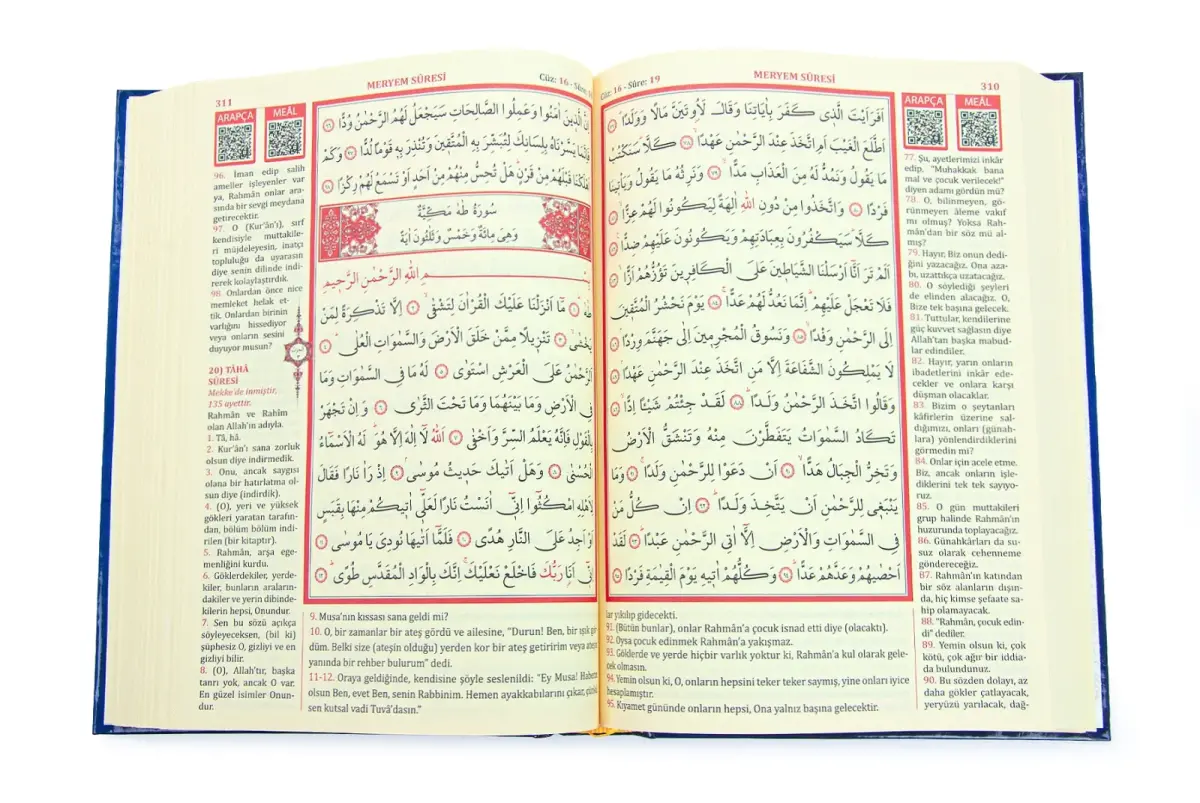 MERYEM SÛRESİ
310
Cüz: 16 - Sûre: 19
ARAPÇA
MEÂL
اَفَرَاَيْتَ الَّذ۪ي كَفَرَ بِاٰيَاتِنَا وَقَالَ لَاُو۫تَيَنَّ مَالًا وَوَلَدًا ﴿٧٧﴾
اَطَّلَعَ الْغَيْبَ اَمِ اتَّخَذَ عِنْدَ الرَّحْمٰنِ عَهْدًا ﴿٧٨﴾ كَلَّا سَنَكْتُبُ
مَا يَقُولُ وَنَمُدُّ لَهُ مِنَ الْعَذَابِ مَدًّا ﴿٧٩﴾ وَنَرِثُهُ مَا يَقُولُ وَيَأْت۪ينَا
فَرْدًا ﴿٨٠﴾ وَاتَّخَذُوا مِنْ دُونِ اللّٰهِ اٰلِهَةً لِيَكُونُوا لَهُمْ عِزًّا ﴿٨١﴾
كَلَّا سَيَكْفُرُونَ بِعِبَادَتِهِمْ وَيَكُونُونَ عَلَيْهِمْ ضِدًّا ﴿٨٢﴾
اَلَمْ تَرَ اَنَّا اَرْسَلْنَا الشَّيَاط۪ينَ عَلَى الْكَافِر۪ينَ تَؤُزُّهُمْ اَزًّا ﴿٨٣﴾
فَلَا تَعْجَلْ عَلَيْهِمْ اِنَّمَا نَعُدُّ لَهُمْ عَدًّا ﴿٨٤﴾ يَوْمَ نَحْشُرُ الْمُتَّق۪ينَ
اِلَى الرَّحْمٰنِ وَفْدًا ﴿٨٥﴾ وَنَسُوقُ الْمُجْرِم۪ينَ اِلٰى جَهَنَّمَ وِرْدًا ﴿٨٦﴾
لَا يَمْلِكُونَ الشَّفَاعَةَ اِلَّا مَنِ اتَّخَذَ عِنْدَ الرَّحْمٰنِ عَهْدًا ﴿٨٧﴾
وَقَالُوا اتَّخَذَ الرَّحْمٰنُ وَلَدًا ﴿٨٨﴾ لَقَدْ جِئْتُمْ شَيْـًٔا اِدًّا ﴿٨٩﴾
تَكَادُ السَّمٰوَاتُ يَتَفَطَّرْنَ مِنْهُ وَتَنْشَقُّ الْاَرْضُ
وَتَخِرُّ الْجِبَالُ هَدًّا ﴿٩٠﴾ اَنْ دَعَوْا لِلرَّحْمٰنِ وَلَدًا ﴿٩١﴾ وَمَا
يَنْبَغ۪ي لِلرَّحْمٰنِ اَنْ يَتَّخِذَ وَلَدًا ﴿٩٢﴾ اِنْ كُلُّ مَنْ
فِي السَّمٰوَاتِ وَالْاَرْضِ اِلَّا اٰتِي الرَّحْمٰنِ عَبْدًا ﴿٩٣﴾ لَقَدْ
اَحْصٰيهُمْ وَعَدَّهُمْ عَدًّا ﴿٩٤﴾ وَكُلُّهُمْ اٰت۪يهِ يَوْمَ الْقِيٰمَةِ فَرْدًا ﴿٩٥﴾
77. Şu, ayetlerimizi inkâr
edip, "Muhakkak bana
mal ve çocuk verilecek!"
diyen adamı gördün mü?
78. O, bilinmeyen, gö-
rünmeyen âleme vakıf
mı olmuş? Yoksa Rah-
mân'dan bir söz mü al-
mış?
79. Hayır, Biz onun dedi-
ğini yazacağız. Ona aza-
bı, uzattıkça uzatacağız.
80. O söylediği şeyleri
de elinden alacağız. O,
Bize tek başına gelecek.
81. Tuttular, kendilerine
güç kuvvet sağlasın diye
Allah'tan başka mabud-
lar edindiler.
82. Hayır, yarın onların
ibadetlerini inkâr ede-
cekler ve onlara karşı
düşman olacaklar.
83. Bizim o şeytanları
kâfirlerin üzerine sal-
dığımızı, onları (günah-
lara) yönlendirdiklerini
görmedin mi?
84. Onlar için acele etme.
Biz, ancak onların işle-
diklerini tek tek sayıyo-
ruz.
85. O gün muttakileri
grup halinde Rahmân'ın
huzurunda toplayacağız.
86. Günahkârları da su-
suz olarak cehenneme
göndereceğiz.
87. Rahmân'ın katından
bir söz alanların dışın-
da, hiç kimse şefaate sa-
hip olamayacak.
88. "Rahmân, çocuk edin-
di" dediler.
89. Yemin olsun ki, çok
kötü, çok ağır bir iddia-
da bulundunuz.
90. Bu sözden dolayı, az
daha gökler çatlayacak,
yeryüzü yarılacak, dağ-
lar yıkılıp gidecekti.
91. (Bütün bunlar), onlar Rahmân'a çocuk isnad etti diye (olacaktı).
92. Oysa çocuk edinmek Rahmân'a yakışmaz.
93. Göklerde ve yerde hiçbir varlık yoktur ki, Rahmân'a kul olarak gele-
cek olmasın.
94. Yemin olsun ki, O, onların hepsini teker teker saymış, yine onları iyice
hesaplamıştır.
95. Kıyamet gününde onların hepsi, Ona yalnız başına gelecektir.
311
MERYEM SÛRESİ
Cüz: 16 - Sûre:
ARAPÇA
MEÂL
اِنَّ الَّذ۪ينَ اٰمَنُوا وَعَمِلُوا الصَّالِحَاتِ سَيَجْعَلُ لَهُمُ الرَّحْمٰنُ وُدًّا ﴿٩٦﴾
فَاِنَّمَا يَسَّرْنَاهُ بِلِسَانِكَ لِتُبَشِّرَ بِهِ الْمُتَّق۪ينَ وَتُنْذِرَ بِه۪ قَوْمًا لُدًّا ﴿٩٧﴾ وَكَمْ
اَهْلَكْنَا قَبْلَهُمْ مِنْ قَرْنٍ هَلْ تُحِسُّ مِنْهُمْ مِنْ اَحَدٍ اَوْ تَسْمَعُ لَهُمْ رِكْزًا ﴿٩٨﴾
سُورَةُ طٰهٰ مَكِّيَّةٌ
وَهِيَ مِائَةٌ وَخَمْسٌ وَثَلٰثُونَ اٰيَةً
بِسْمِ اللّٰهِ الرَّحْمٰنِ الرَّح۪يمِ
طٰهٰ ﴿١﴾ مَٓا اَنْزَلْنَا عَلَيْكَ الْقُرْاٰنَ لِتَشْقٰى ﴿٢﴾ اِلَّا تَذْكِرَةً لِمَنْ
يَخْشٰى ﴿٣﴾ تَنْز۪يلًا مِمَّنْ خَلَقَ الْاَرْضَ وَالسَّمٰوَاتِ الْعُلٰى ﴿٤﴾
اَلرَّحْمٰنُ عَلَى الْعَرْشِ اسْتَوٰى ﴿٥﴾ لَهُ مَا فِي السَّمٰوَاتِ وَمَا
فِي الْاَرْضِ وَمَا بَيْنَهُمَا وَمَا تَحْتَ الثَّرٰى ﴿٦﴾ وَاِنْ تَجْهَرْ
بِالْقَوْلِ فَاِنَّهُ يَعْلَمُ السِّرَّ وَاَخْفٰى ﴿٧﴾ اَللّٰهُ لَا اِلٰهَ اِلَّا هُوَ لَهُ الْاَسْمَاءُ
الْحُسْنٰى ﴿٨﴾ وَهَلْ اَتٰيكَ حَد۪يثُ مُوسٰى ﴿٩﴾ اِذْ رَاٰ نَارًا فَقَالَ
لِاَهْلِهِ امْكُثُوا اِنّ۪ي اٰنَسْتُ نَارًا لَعَلّ۪ي اٰت۪يكُمْ مِنْهَا بِقَبَسٍ
اَوْ اَجِدُ عَلَى النَّارِ هُدًى ﴿١٠﴾ فَلَمَّا اَتٰيهَا نُودِيَ يَا مُوسٰى ﴿١١﴾
اِنّ۪ي اَنَا رَبُّكَ فَاخْلَعْ نَعْلَيْكَ اِنَّكَ بِالْوَادِ الْمُقَدَّسِ طُوًى ﴿١٢﴾
96. İman edip salih
ameller işleyenler var
ya, Rahmân onlar ara-
sında bir sevgi meydana
getirecektir.
97. O (Kur'an'ı), sırf
kendisiyle muttakile-
ri müjdeleyesin, inatçı
topluluğu da uyarasın
diye senin dilinde indi-
rerek kolaylaştırdık.
98. Onlardan önce nice
memleket helak et-
tik. Onlardan birinin
varlığını hissediyor
veya onların sesini
duyuyor musun?
20) TÂHÂ
SÛRESİ
Mekke'de inmiştir,
135 ayettir.
Rahmân ve Rahîm
olan Allah'ın adıyla.
1. Tâ, hâ.
2. Kur'ân'ı sana zorluk
olsun diye indirmedik.
3. Onu, ancak saygısı
olana bir hatırlatma ol-
sun diye (indirdik).
4. (O), yeri ve yüksek
gökleri yaratan tarafın-
dan, bölüm bölüm indi-
rilen (bir kitaptır).
5. Rahmân, arşa ege-
menliğini kurdu.
6. Göklerdekiler, yerde-
kiler, bunların araların-
dakiler ve yerin dibinde-
kilerin hepsi, Onundur.
7. Sen bu sözü açıkça
söyleyeceksen, (bil ki)
şüphesiz O, gizliyi ve en
gizliyi bilir.
8. (O), Allah'tır, başka
tanrı yok, ancak O var.
En güzel isimler Onun-
dur.
9. Musa'nın kıssası sana geldi mi?
10. O, bir zamanlar bir ateş gördü ve ailesine, "Durun! Ben, bir ışık gör-
düm. Belki size (ateşin olduğu) yerden kor bir ateş getiririm veya ateşin
yanında bir rehber bulurum" dedi.
11-12. Oraya geldiğinde, kendisine şöyle seslenildi: "Ey Musa! Haberin
olsun Ben, evet Ben, senin Rabbinim. Hemen ayakkabılarını çıkar, çünkü
sen kutsal vadi Tuvâ'dasın."